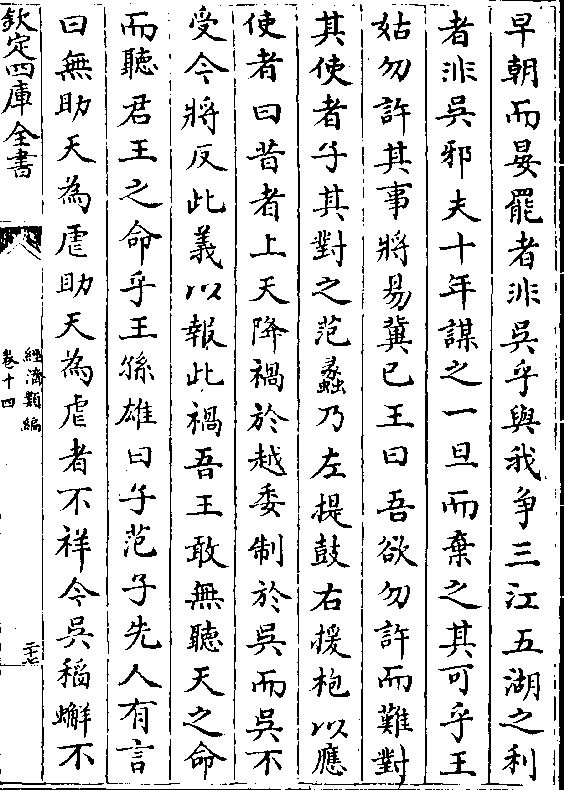 早朝而晏罷者非吳乎與我争三江五湖之利
者非吳邪夫十年謀之一旦而棄之其可乎王
姑勿許其事將易冀已王曰吾欲勿許而難對
其使者子其對之范蠡乃左提鼓右援枹以應
使者曰昔者上天降禍於越委制於吳而吳不
受今將反此義以報此禍吾王敢無聽天之命
而聽君王之命乎王孫雄曰子范子先人有言
曰無助天為虐助天為虐者不祥今吳稻蠏不
欽定四庫全書
經濟類編
卷十四
二十七